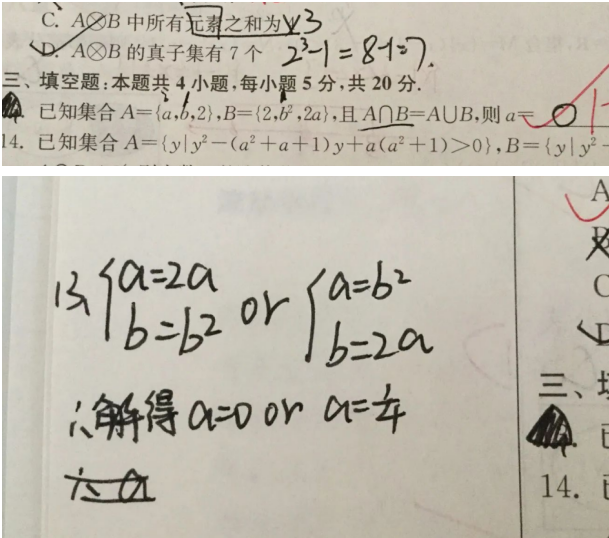 C. A⊗B 中所有元素之和为 3
D. A⊗B 的真子集有 7 个 2³-1=8-1=7.
三、填空题:本题共 4 小题,每小题 5 分,共 20 分.
已知集合 A={a,b,2},B={2,b²,2a},且 A∩B=A∪B,则 a= 0
14. 已知集合 A={y|y²-(a²+a+1)y+a(a²+1)>0},B={y|y²-
13、{a=2a b=b² or {a=b² b=2a
∴解得 a=0 or a=1/4
∴ a
A
C
D
三、填
已
14. 已